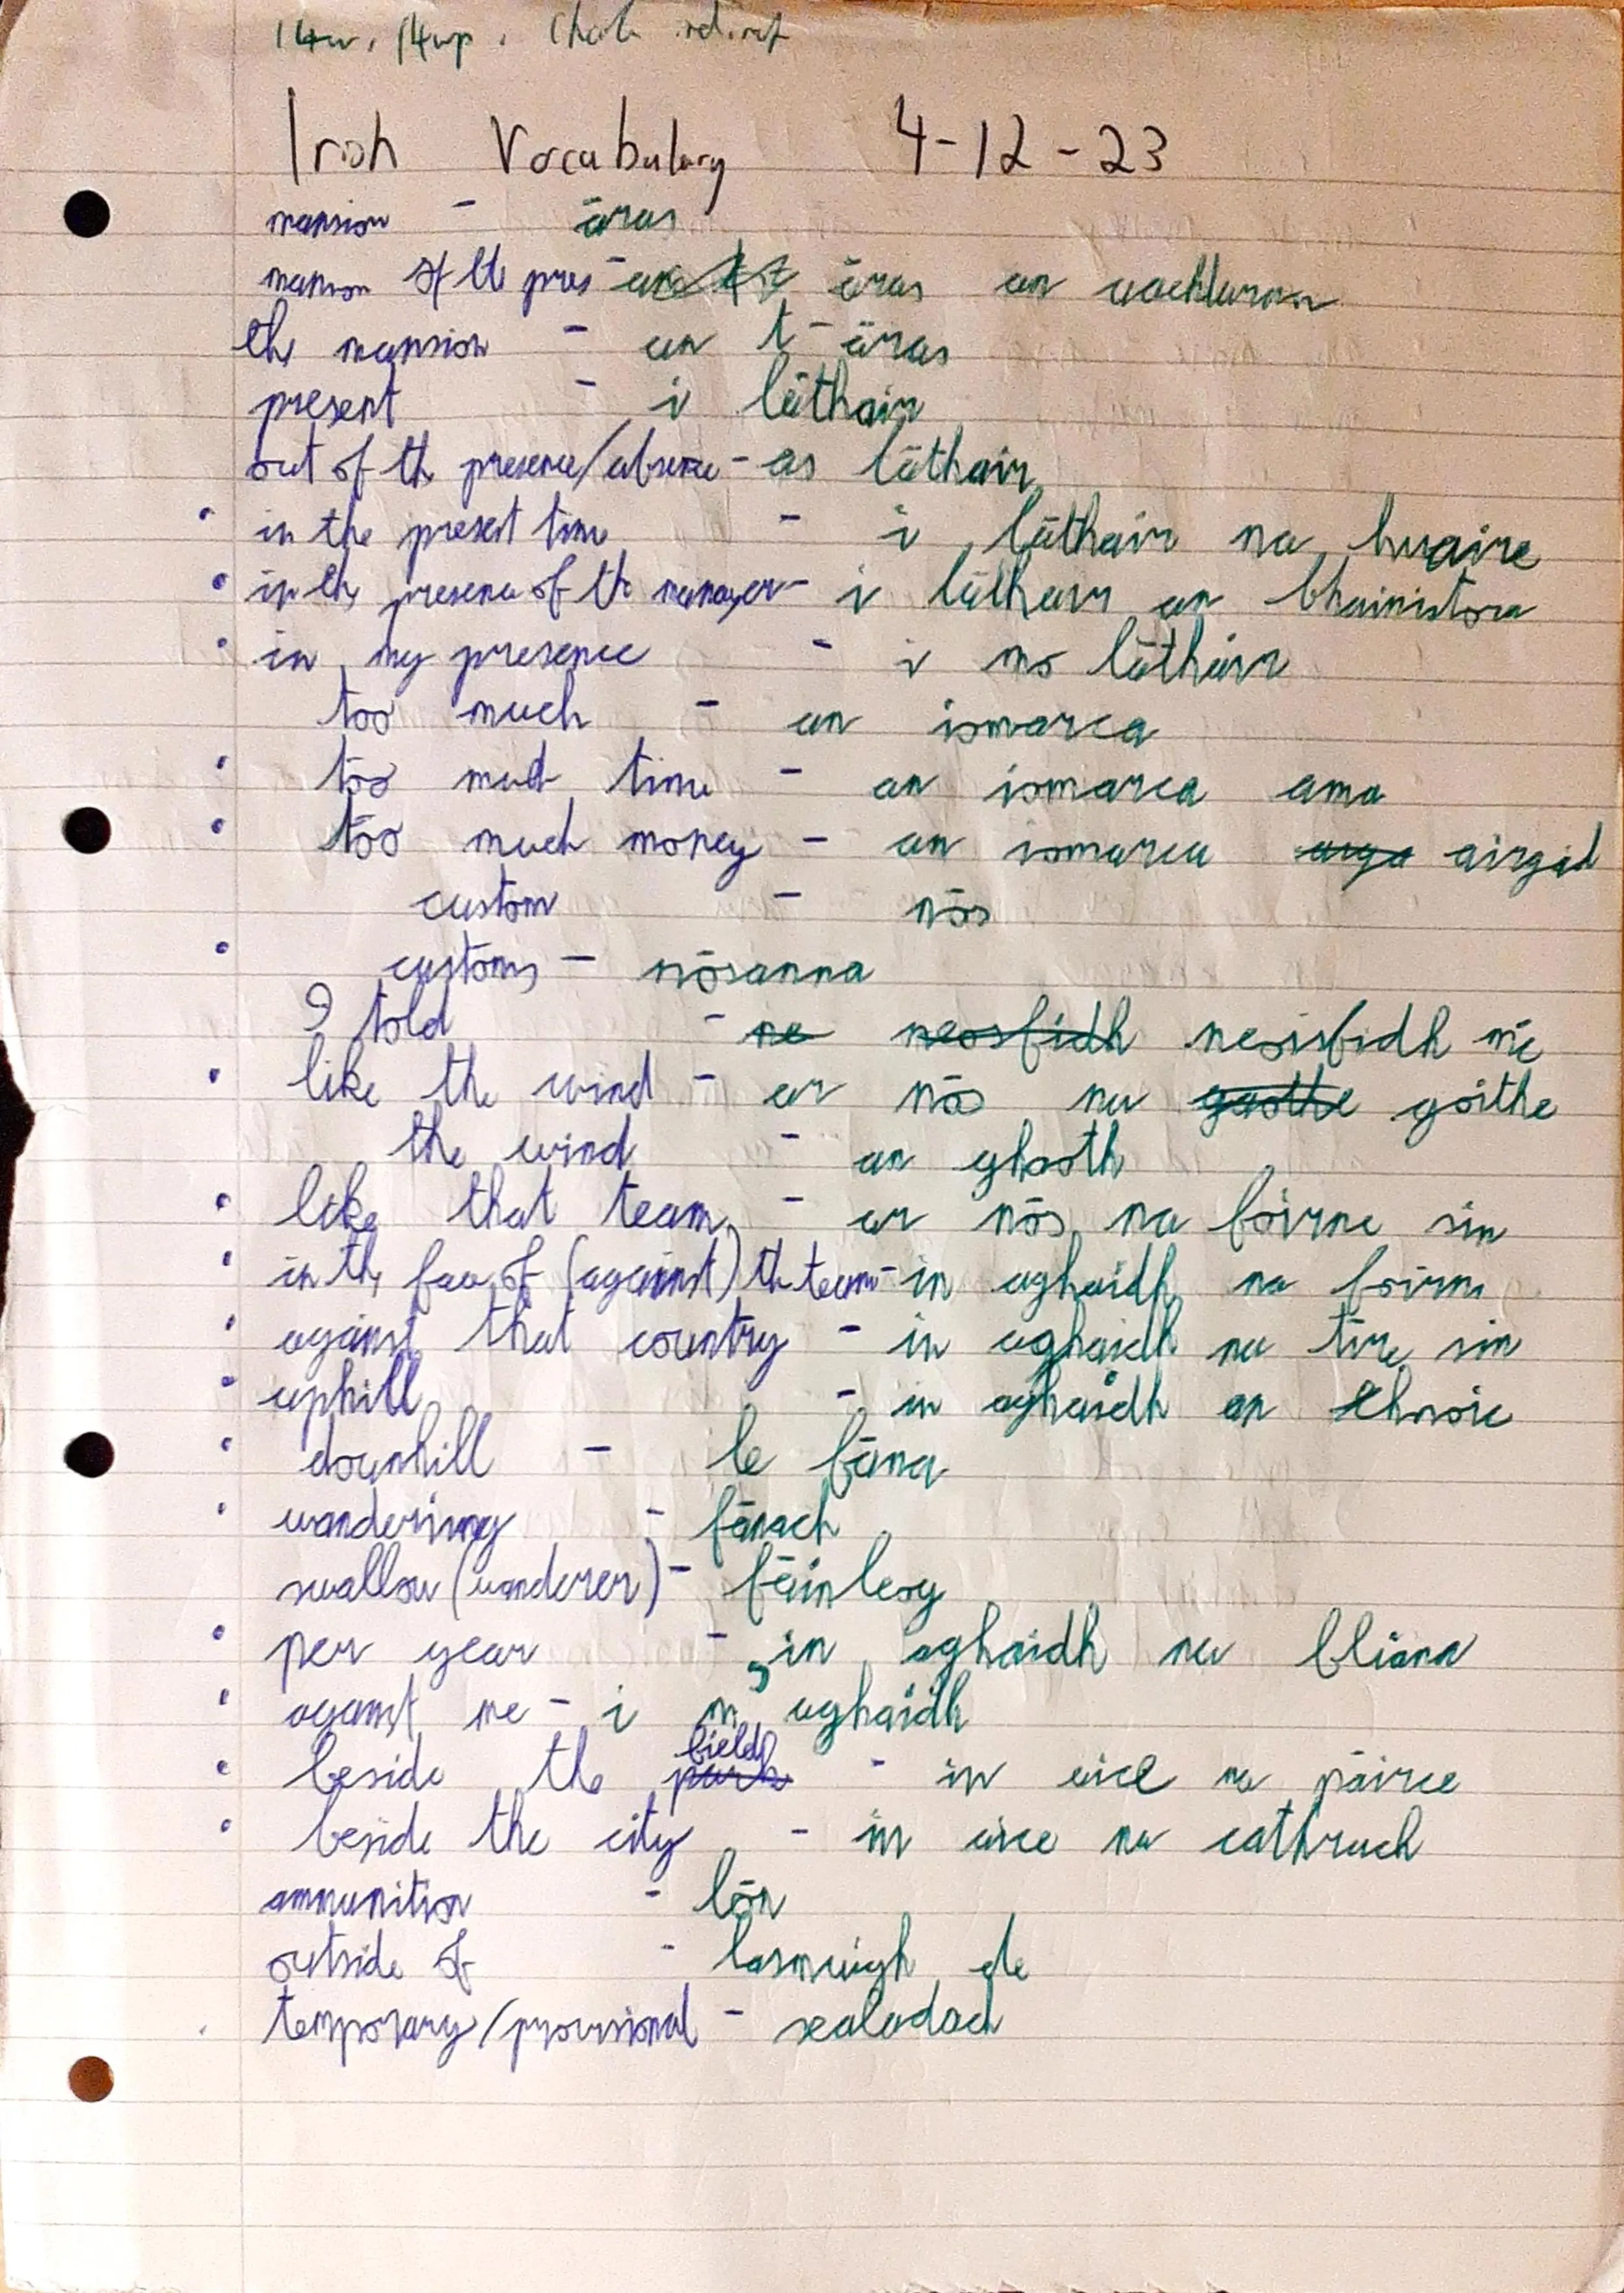 Irish Vocabulary 4-12-23
mansion - āras
mansion of the pres - āras an uachtarán
the mansion - an t-āras
present - i lāthair
out of the presence/absence - as lāthair
• in the present time - i lāthair na huaire
• in the presence of the manager - i lāthair an bhainistora
• in my presence - i mo lāthair
too much - an iomarca
• too much time - an iomarca ama
• too much money - an iomarca airgid
custom - nōs
• customs - nōsanna
I told - neosfidh neoisfidh mē
• like the wind - ar nōs na gaothe goithe
the wind - an ghaoth
• like that team - ar nōs na foirne sin
• in the face of (against) the team - in aghaidh na foirne
• against that country - in aghaidh na tīre sin
• uphill - in aghaidh an chnoic
• downhill - le fāna
• wandering - fānach
swallow (wanderer) - fāinleog
• per year - in aghaidh na bliana
• against me - i m'aghaidh
• beside the park field - in aice na pāirce
• beside the city - in aice na cathrach
ammunition - lōn
outside of - lasmuigh de
temporary/provisional - sealadach